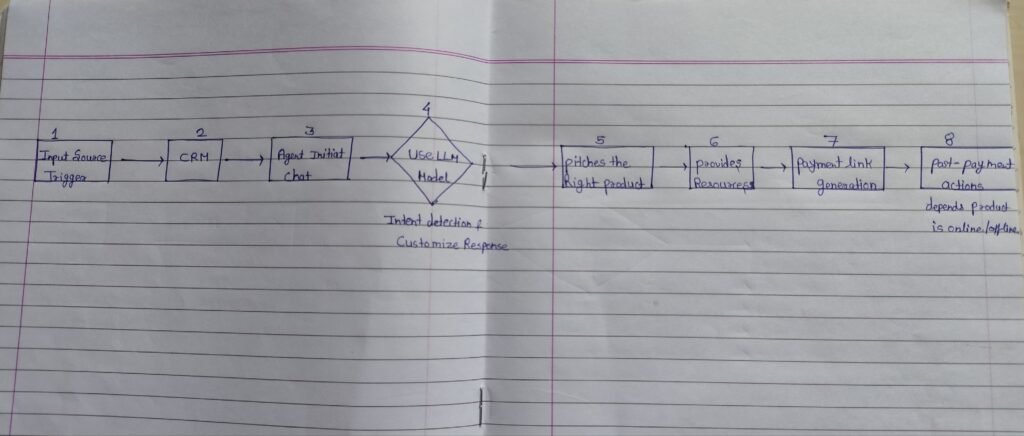 1
Input Source
Trigger
2
CRM
3
Agent Initiat
Chat
4
Use LLM
Model
Intent detection &
Customize Response
5
pitches the
Right product
6
provides
Resources
7
Payment link
generation
8
Post-payment
actions
depends product
is online/offline.